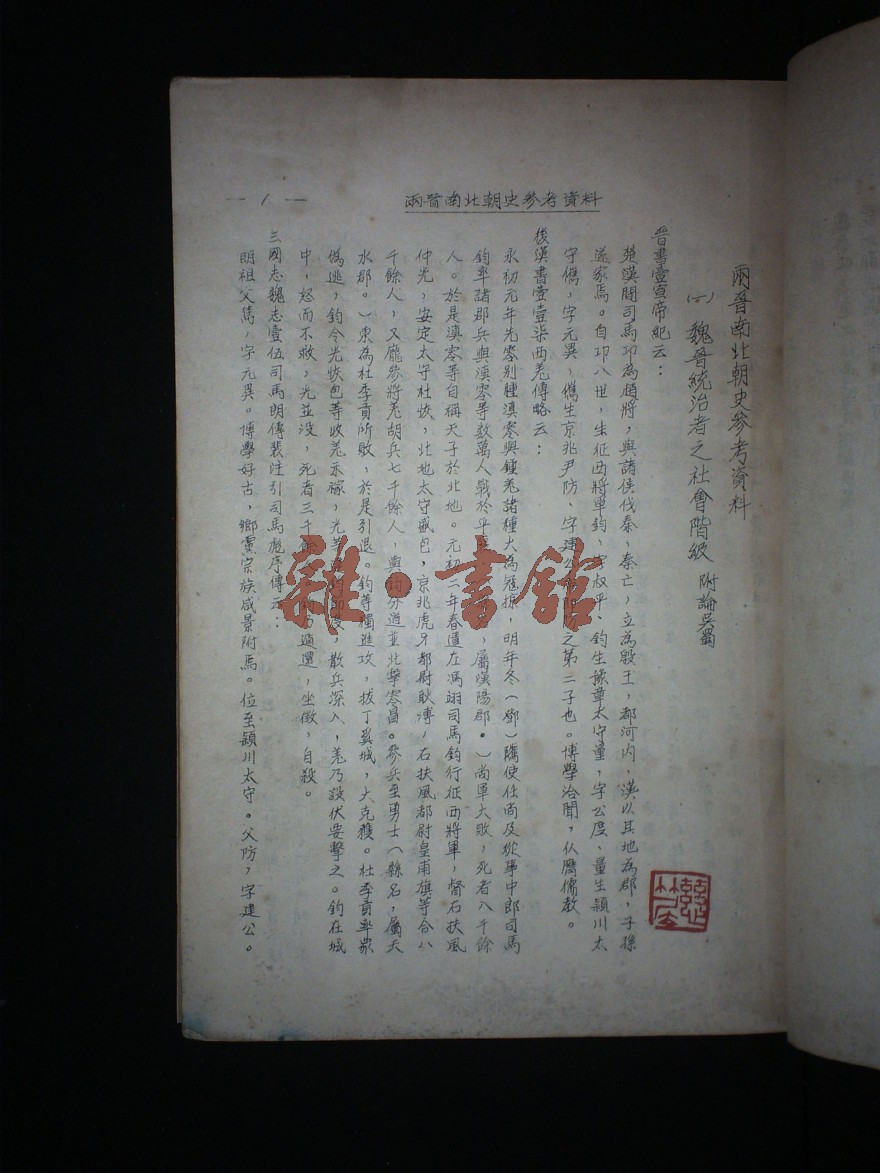 兩晉南北朝史參考資料
— 1 —
兩晉南北朝史參考資料
(一) 魏晉統治者之社會階級 附論吳蜀
晉書壹宣帝紀云：
楚漢間司馬卬為趙將，與諸侯伐秦，秦亡，立為殷王，都河內，漢以其地為郡，子孫
遂家焉。自卬八世，生征西將軍鈞，字叔平、鈞生豫章太守量，字公度、量生潁川太
守儁，字元異，儁生京兆尹防，字建公，防之第二子也。博學洽聞，伏膺儒教。
後漢書壹壹柒西羌傳略云：
永初元年先零別種滇零與鍾羌諸種大為寇掠，明年冬(鄧)隲使任尚及從事中郎司馬
鈞率諸郡兵與滇零等數萬人戰於平，屬漢陽郡。)尚軍大敗，死者八千餘
人。於是滇零等自稱天子於北地。元初二年春遣左馮翊司馬鈞行征西將軍，督右扶風
仲光，安定太守杜恢，北地太守盛包，京兆虎牙都尉耿溥，右扶風都尉皇甫旗等合八
千餘人，又龐參將羌胡兵七千餘人，與鈞分道並北擊零昌。參兵至勇士(縣名，屬天
水郡。)東為杜季貢所敗，於是引退。鈞等獨進攻，拔丁奚城，大克獲。杜季貢率眾
偽逃，鈞令光恢包等收羌禾稼，光等節度，散兵深入，羌乃設伏要擊之。鈞在城
中，怒而不救，光並沒，死者三千餘，鈞乃遁還，坐徵，自殺。
三國志魏志壹伍司馬朗傳裴注引司馬彪序傳云：
朗祖父雋，字元異。博學好古，鄉黨宗族咸景附焉。位至潁川太守。父防，字建公。
雜·書館